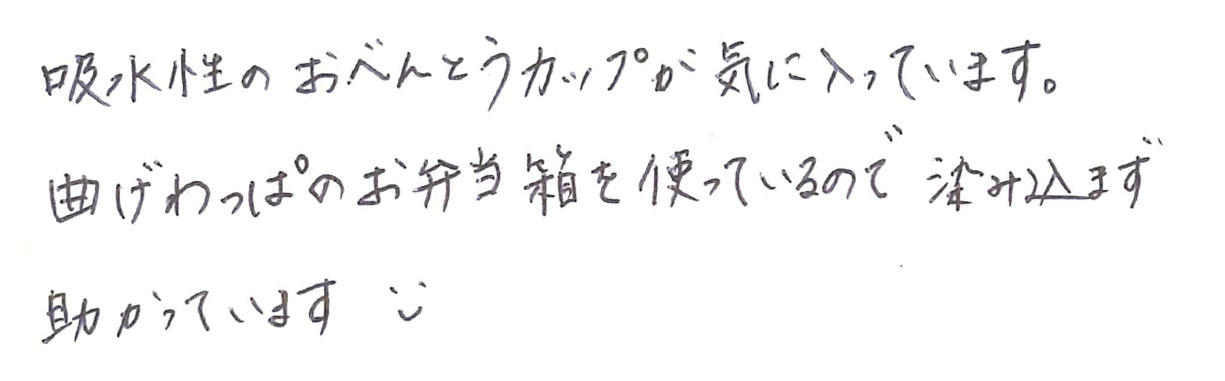 吸水性のおべんとうカップが気に入っています。
曲げわっぱのお弁当箱を使っているので染み込まず
助かっています